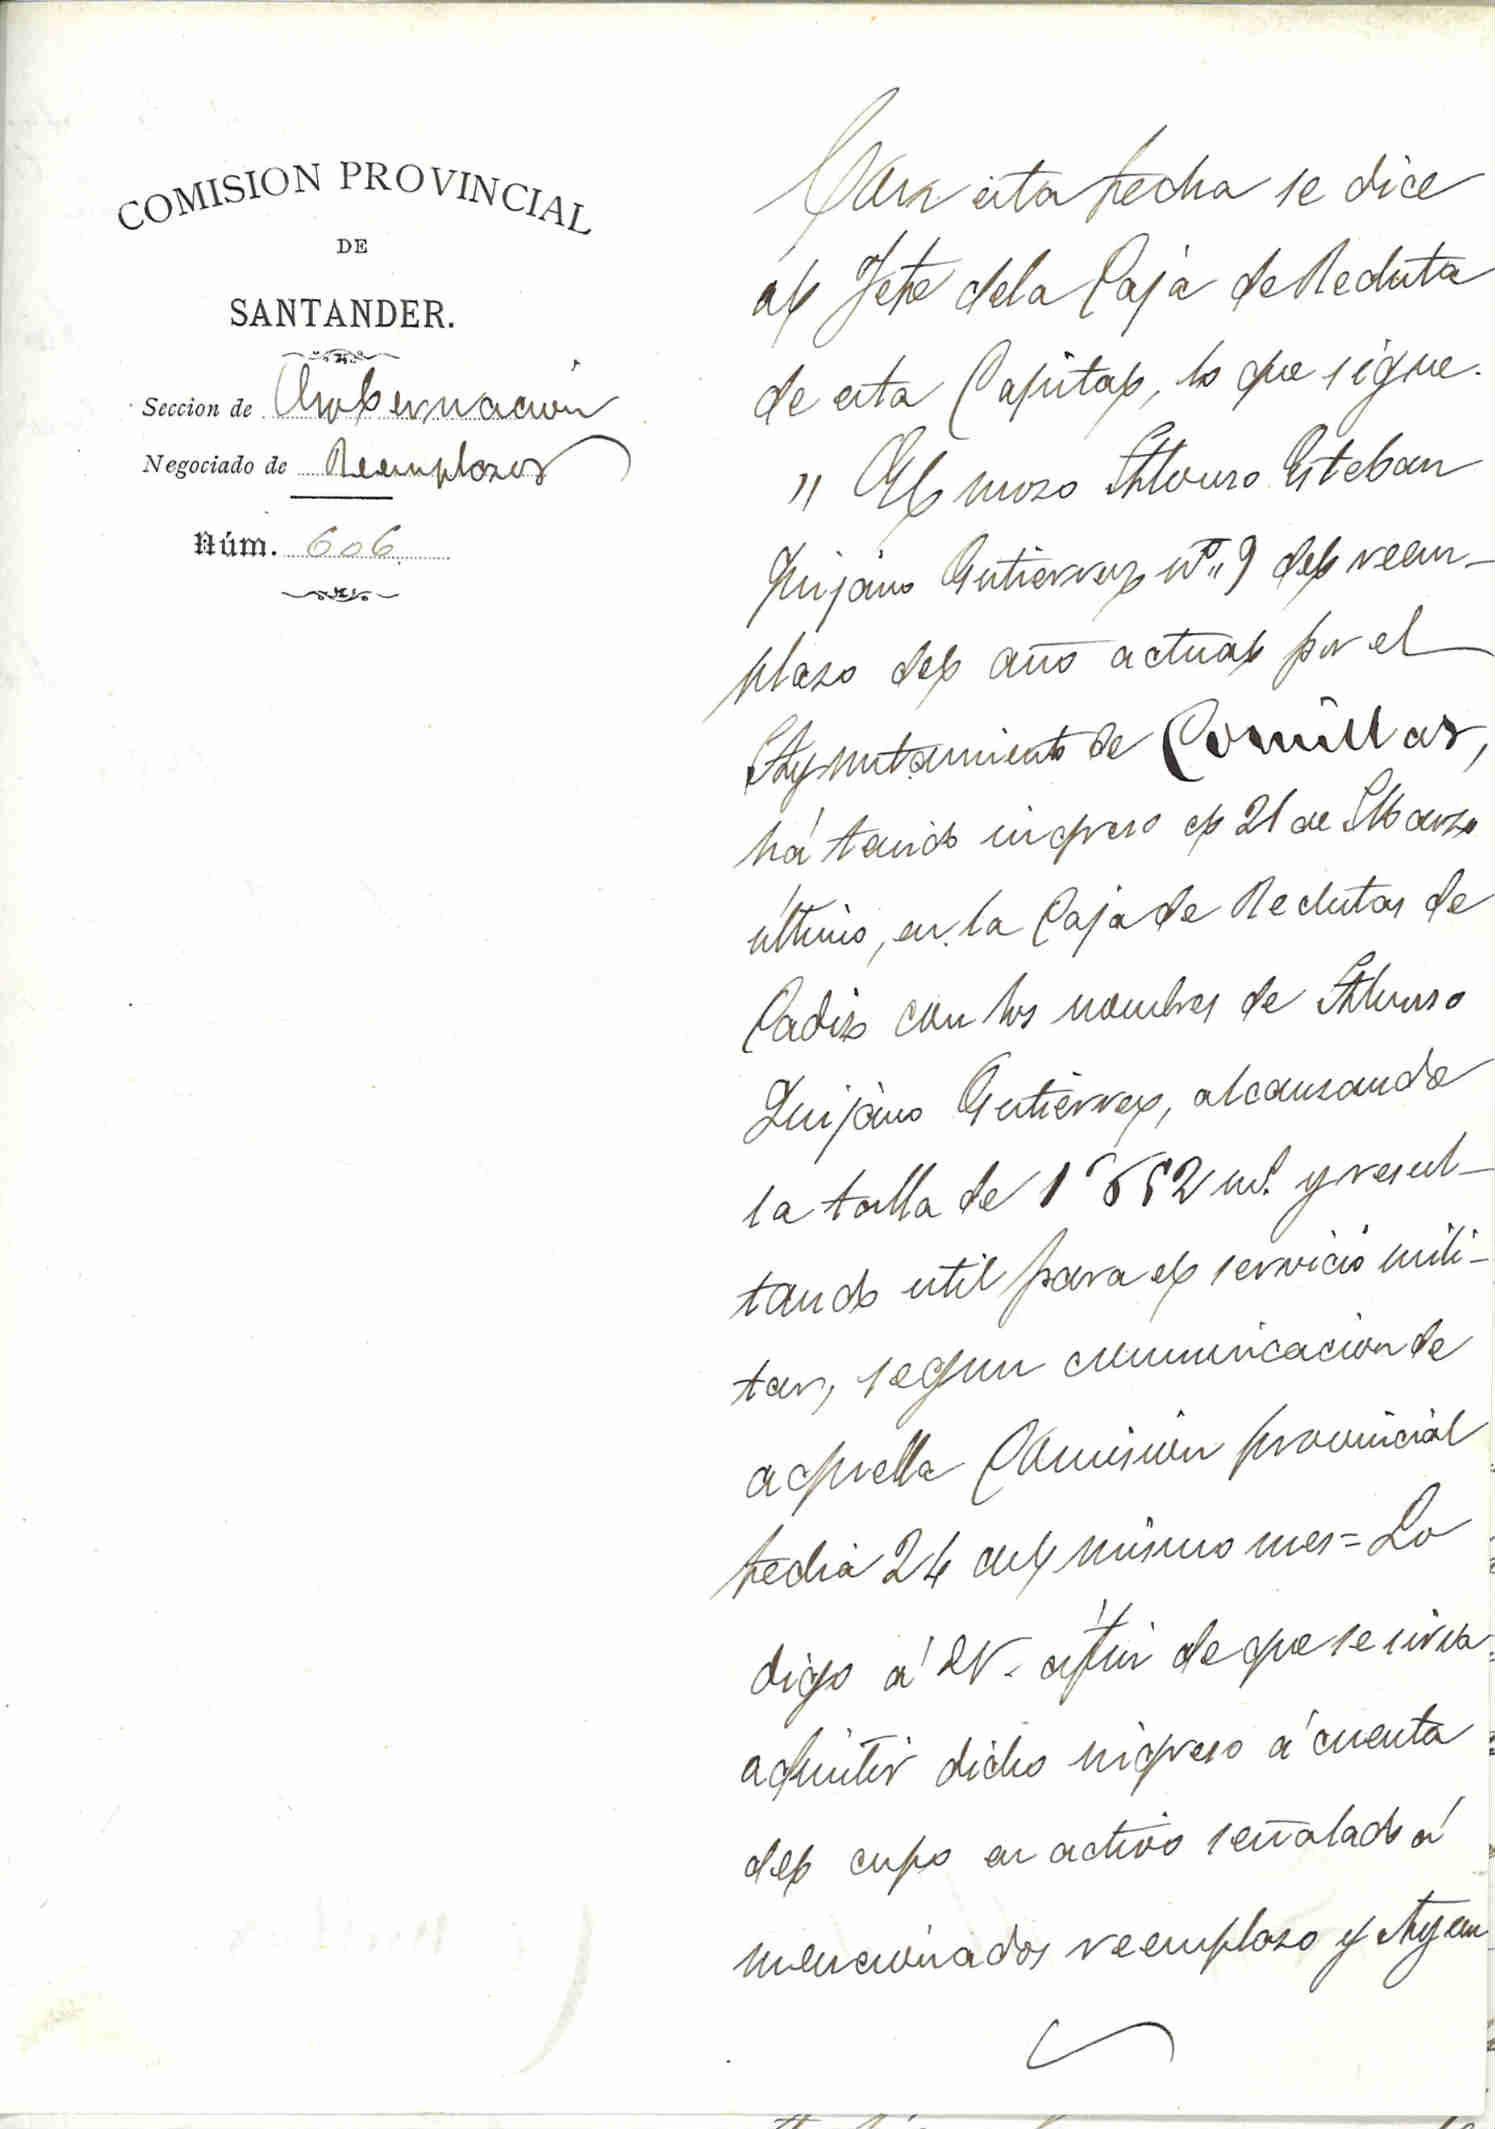 COMISION PROVINCIAL
DE
SANTANDER.
Seccion de Gobernación
Negociado de Reemplazos
Núm. 606
Con esta fecha se dice
al Jefe dela Caja de Recluta
de esta Capital, lo que sigue.
" El mozo Alonso Esteban
Quijano Gutierrez nº" 9 del reem-
plazo del año actual por el
Ayuntamiento de Comillas,
há tenido ingreso el 21 de Marzo
último, en la Caja de Reclutas de
Cadiz con los nombres de Alonso
Quijano Gutiérrez, alcanzando
la talla de 1'652 m.s y resul-
tando util para el servicio mili-
tar, segun comunicacion de
aquella Comisión provincial
fecha 24 del mismo mes = Lo
digo á V. afin de que se sirva
admitir dicho ingreso á cuenta
del cupo en activo señalado á
mencionados reemplazo y Ayun